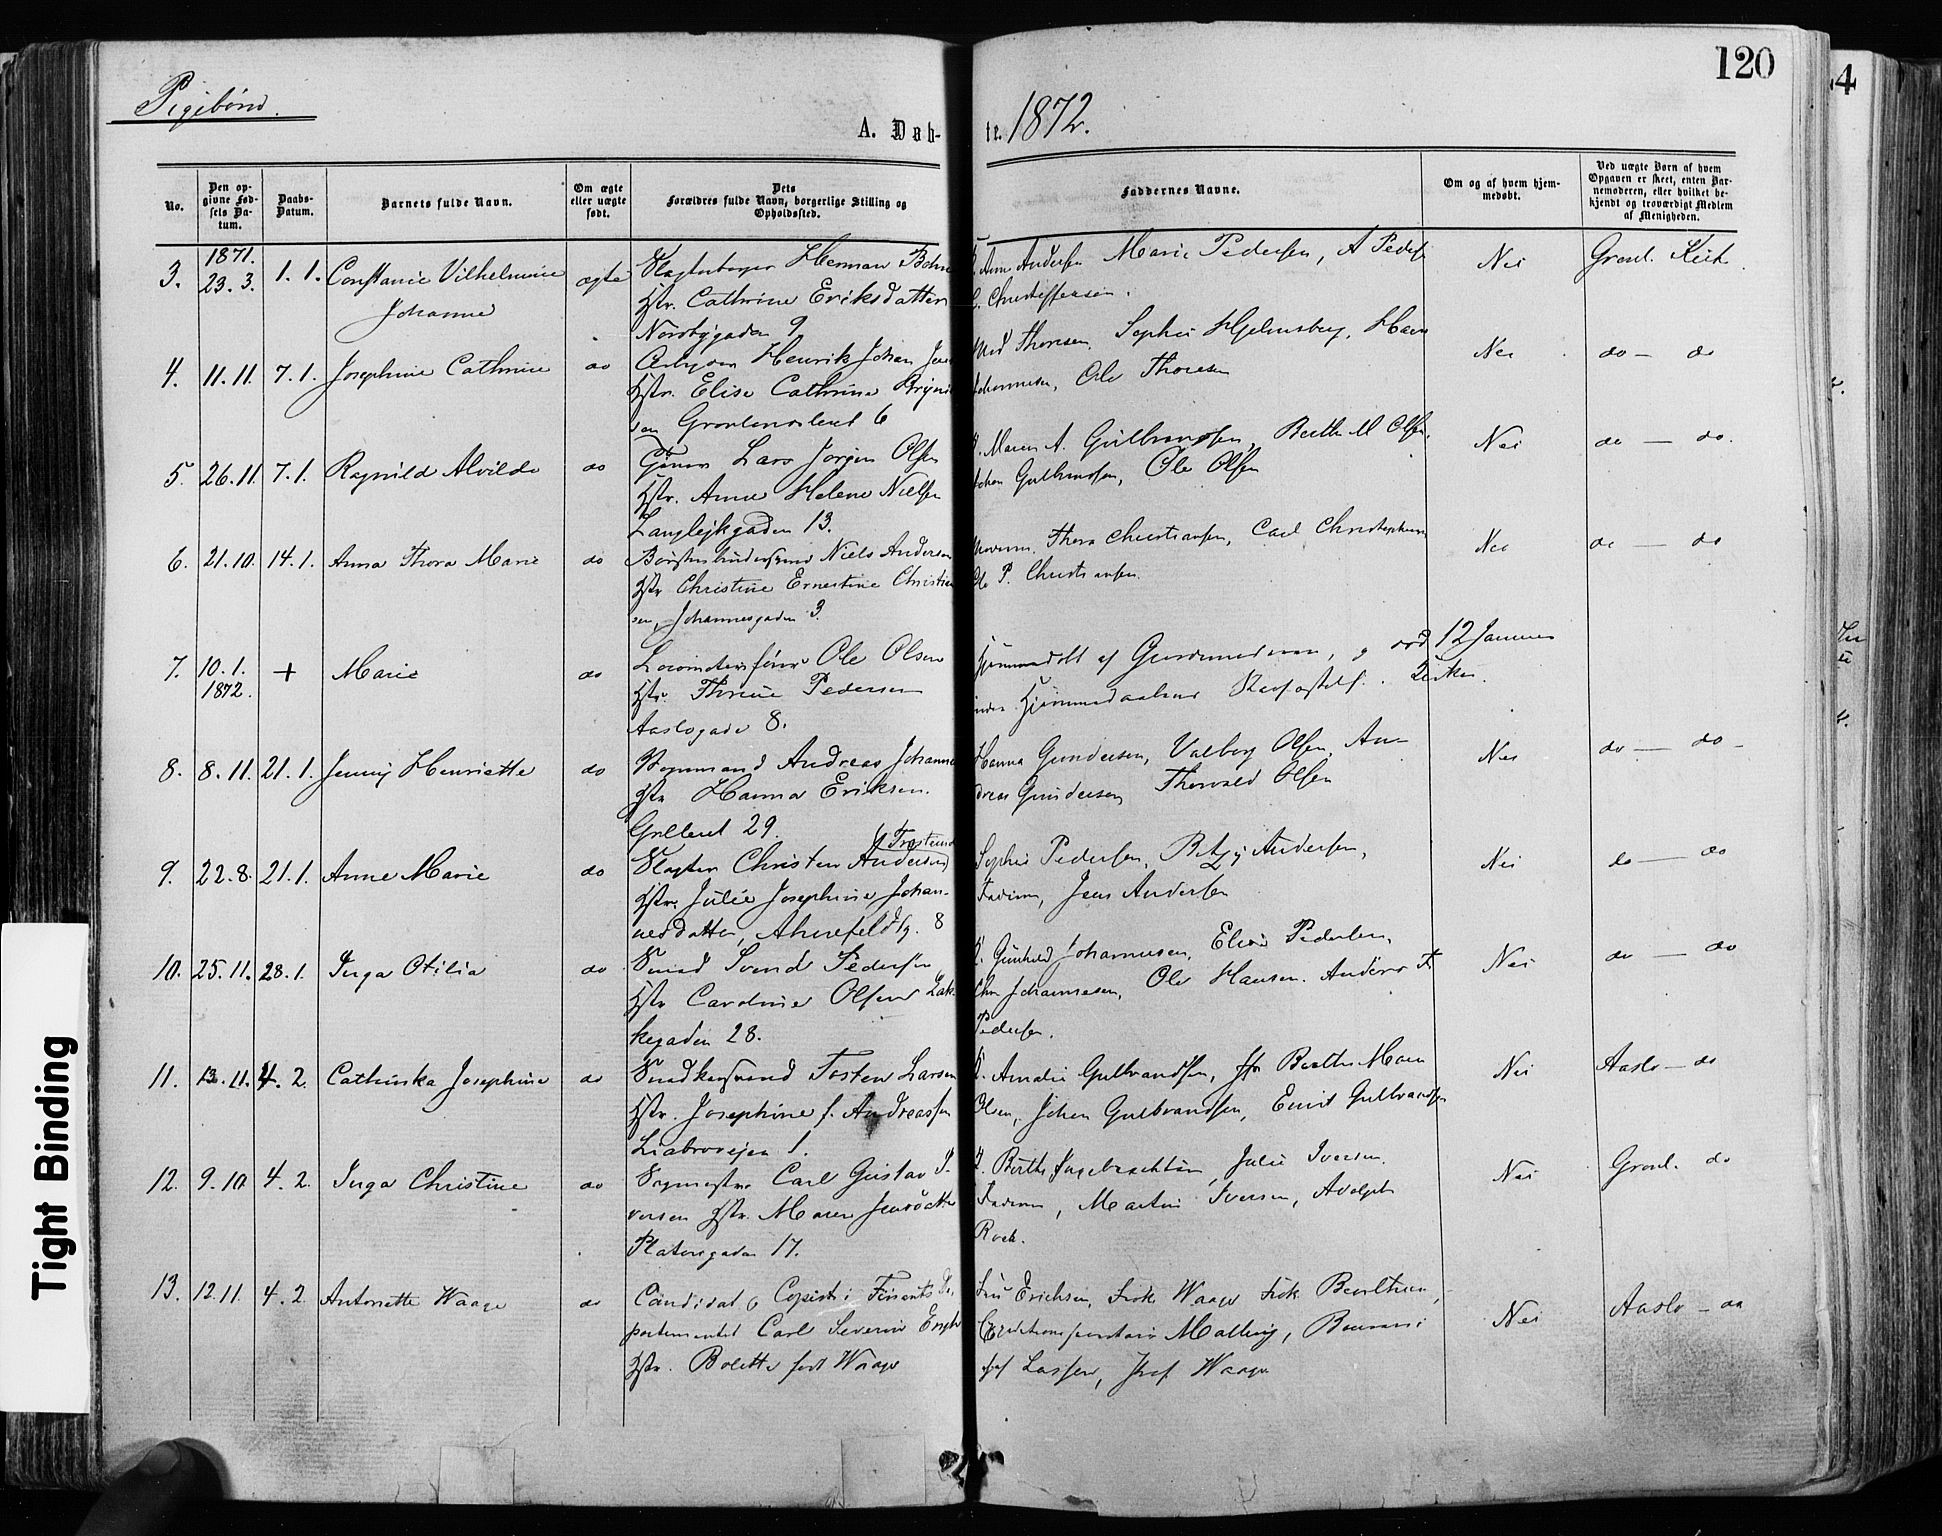 120
4
Pigebørn.
A. Døb-
te. 1872.
No.
Den opgivne Fødsels Datum.
Daabs-Datum.
Barnets fulde Navn.
Om ægte eller uægte født.
Dets Forældres fulde Navn, borgerlige Stilling og Opholdssted.
Faddernes Navne.
Om og af hvem hjemmedøbt.
Ved uægte Børn af hvem Opgaven er skeet, enten Barnemoderen, eller hvilket bekjendt og troværdigt Medlem af Menigheden.
1871.
3. 23. 3. 1. 1. Constanse Vilhelmine ægte Herman
Johanne
Hstr. Cathrine Eriksdatter
Nordbygaden 9
Anne Andersen Marie Pedersen, A Peders
C. Christoffersen.
Nei Grønl. Kirk
4. 11. 11. 7. 1. Josephine Cathrine do Henrik Johan
Hstr. Elise Cathrine
sen Grønlandsleret 6
Thoresen, Sophie Hjelmsberg, Hans
Johannesen, Ole Thoresen
Nei do — do
5. 26. 11. 7. 1. Ragnild Alvilde do Lars Jørgen Olsen
Hstr. Anne Helene Nielsen
Langlejkgaden 13.
Maren A. Gulbrandsen, Berthe M Olsen,
Johan Gulbrandsen, Ole Olsen
Nei do — do.
6. 21. 10. 14. 1. Anna Thora Marie do Børstenbindersvend Niels Andersen
Hstr Christine Ernestine Christian
sen, Johannesgaden 3.
Thora Christiansen, Carl Christophersen
Ole P. Christiansen.
Nei do — do
7. 10. 1. 1872. + Marie do Locomotivfører Ole Olsen
Hstr. Thrine Pedersen
Aaslogade 8.
Hjemmedøbt af Gjordemoderen, og død 12 Januar
inden Hjemmedaabens
8. 8. 11. 21. 1. Jenny Henriette do Vognmand Andreas Johanne
Hstr Hanna Eriksen.
Grlleret 29.
Hanna Gundersen, Valborg Olsen, An
dreas Gundersen, Thorvald Olsen
Nei do — do
9. 22. 8. 21. 1. Anne Marie do Slagter Christen Andersen
Hstr. Julie Josephine Johan-
nesdatter, Ahnefeldtg. 8
Sophie Pedersen, Betzy Andersen,
Faderen, Jens Andersen
Nei do — do
10. 25. 11. 28. 1. Inga Otilia do Smed Svend Pedersen
Hstr Caroline Olsen Lak-
kegaden 28.
Gunhild Johannesen, Elise Pedersen,
Chr Johannesen, Ole Hansen. Anders
Pedersen.
Nei do — do
11. 13. 11. 4. 2. Cathinka Josephine do Snedkersvend Tosten Larsen
Hstr. Josephine f. Andreassen
Liabroveien 1.
Amalie Gulbrandsen, Berthe Maren
Olsen, Johan Gulbrandsen, Emil Gulbrandsen
Nei Aaslo — do
12. 9. 10. 4. 2. Inga Christine do Carl Gustav I-
versen Hstr. Maren Jensdatter
Platousgaden 17.
Berthe Ingebrechtsen, Julie Iversen.
Faderen, Martin Iversen, Adolph
Nei Grønl. do
13. 12. 11. 4. 2. Antonette Waage do Candidat og Copist i Finants De-
partementet Carl Severin
Hstr. Bolette født Waage
Fru Erichsen, Frøk Waage Frøk
Expeditionssecretair Malling,
Lassen, Prof Waage
Nei Aaslo — do
Tight Binding